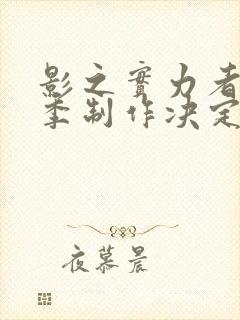 影之實力者
季制作决定
夜慕晨